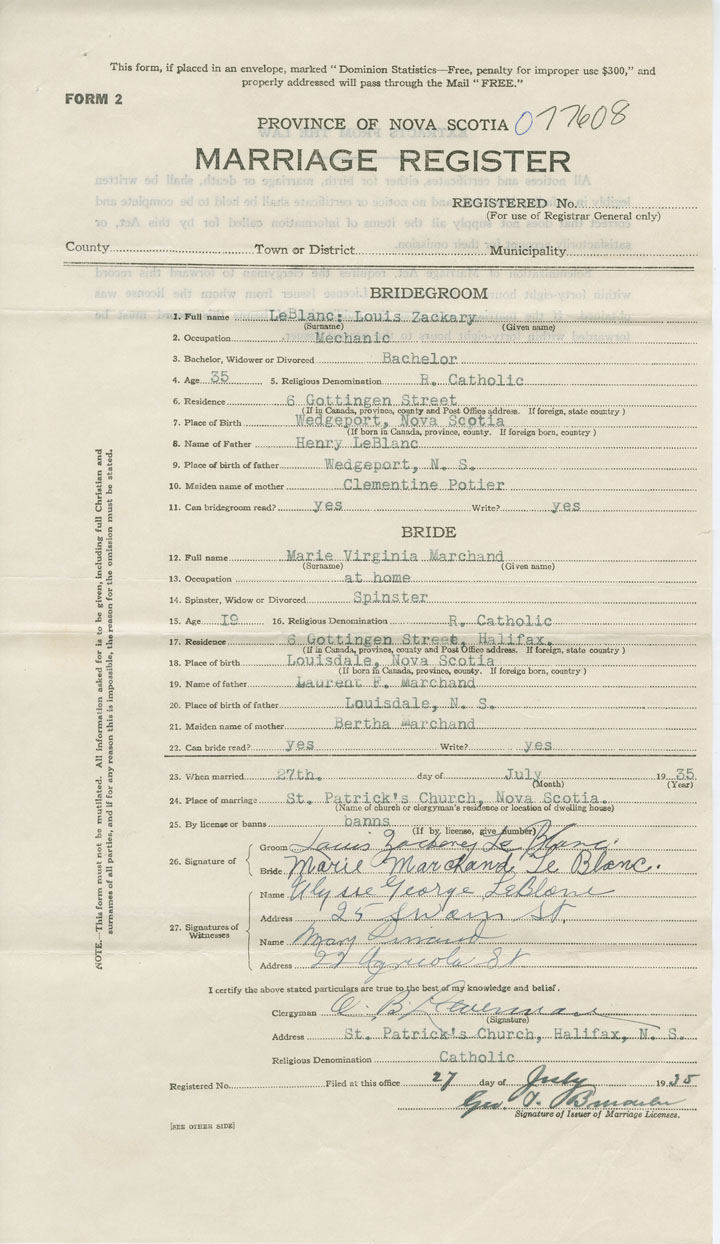 This form, if placed in an envelope, marked "Dominion Statistics—Free, penalty for improper use $300," and
properly addressed will pass through the Mail "FREE."
FORM 2
PROVINCE OF NOVA SCOTIA 077608
MARRIAGE REGISTER
REGISTERED No.
(For use of Registrar General only)
County Town or District Municipality
BRIDEGROOM
1. Full name LeBlanc: Louis Zackary
(Surname) (Given name)
2. Occupation Mechanic
3. Bachelor, Widower or Divorced Bachelor
4. Age 35 5. Religious Denomination R. Catholic
6. Residence 6 Gottingen Street
(If in Canada, province, county and Post Office address. If foreign, state country)
7. Place of Birth Wedgeport, Nova Scotia
(If born in Canada, province, county. If foreign born, country)
8. Name of Father Henry LeBlanc
9. Place of birth of father Wedgeport, N. S.
10. Maiden name of mother Clementine Potier
11. Can bridegroom read? yes Write? yes
BRIDE
12. Full name Marie Virginia Marchand
(Surname) (Given name)
13. Occupation at home
14. Spinster, Widow or Divorced Spinster
15. Age I9 16. Religious Denomination R. Catholic
17. Residence 6 Gottingen Street, Halifax.
(If in Canada, province, county and Post Office address. If foreign, state country)
18. Place of birth Louisdale, Nova Scotia
(If born in Canada, province, county. If foreign born, country)
19. Name of father Laurent F. Marchand
20. Place of birth of father Louisdale, N. S.
21. Maiden name of mother Bertha Marchand
22. Can bride read? yes Write? yes
23. When married 27th. day of July 1935
(Month) (Year)
24. Place of marriage St. Patrick's Church, Nova Scotia.
(Name of church or clergyman's residence or location of dwelling house)
25. By license or banns banns
(If by license, give number)
26. Signature of Groom Louis Zackery Le Blanc.
Bride Marie Marchand Le Blanc.
27. Signatures of Witnesses Name Ulysse George LeBlanc
Address 25 Swain St.
Name Mary
Address 22 Agricola St
I certify the above stated particulars are true to the best of my knowledge and belief.
Clergyman
(Signature)
Address St. Patrick's Church, Halifax, N. S.
Religious Denomination Catholic
Registered No. Filed at this office 27 day of July 1935
Geo.
Signature of Issuer of Marriage Licenses.
[SEE OTHER SIDE]
NOTE.—This form must not be mutilated. All information asked for is to be given, including full Christian and
surnames of all parties, and if for any reason this is impossible, the reason for the omission must be stated.